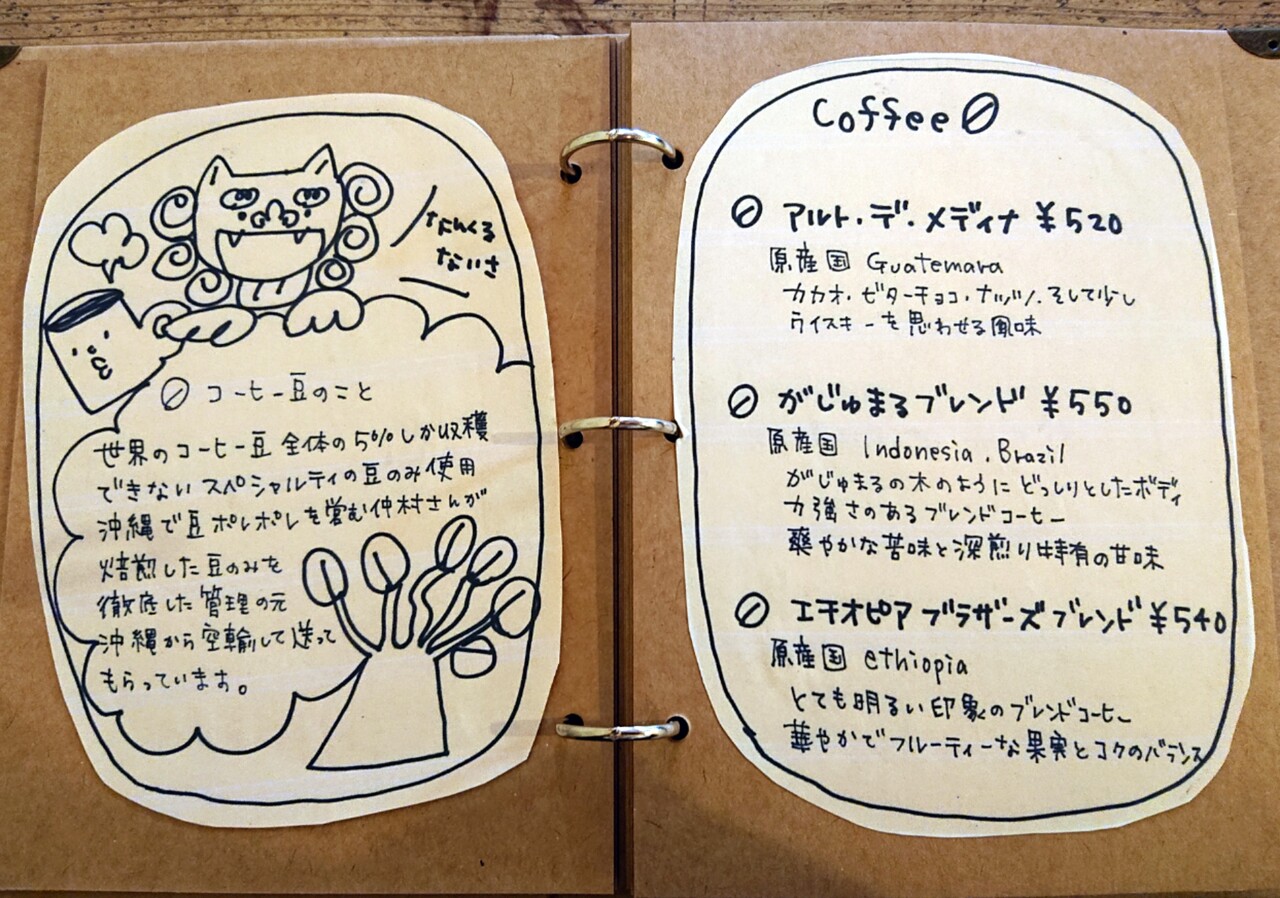 なんくる
ないさ
コーヒー豆のこと
世界のコーヒー豆全体の5%しか収穫
できないスペシャルティの豆のみ使用
沖縄で豆ポレポレを営む仲村さんが
焙煎した豆のみを
徹底した管理の元
沖縄から空輸して送って
もらっています。
Coffee
アルト・デ・メディナ ¥520
原産国 Guatemara
カカオ・ビターチョコ・ナッツ、そして少し
ウイスキーを思わせる風味
がじゅまるブレンド ¥550
原産国 Indonesia.Brazil
がじゅまるの木のようにどっしりとしたボディ
力強さのあるブレンドコーヒー
爽やかな苦味と深煎り特有の甘味
エチオピアブラザーズブレンド ¥540
原産国 ethiopia
とても明るい印象のブレンドコーヒー
華やかでフルーティーな果実とコクのバランス